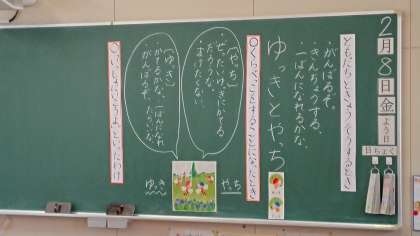 2月8日金よう日
日ちょく
ともだちときょうそうするとき
・がんばるぞ。
・きんちょうする。
・一ばんになれるかな。
ゆっきとやっち
◎くらべっこをすることになったとき
〔やっち〕
・ぜったいゆっきにかてる
だろうな。
・まけたくない。
〔ゆっき〕
・かてるかな、一ばんになれ
るかな。
がんばるぞ。
◎「いっしょにいこうよ」といったわけ
やっち
ゆっき